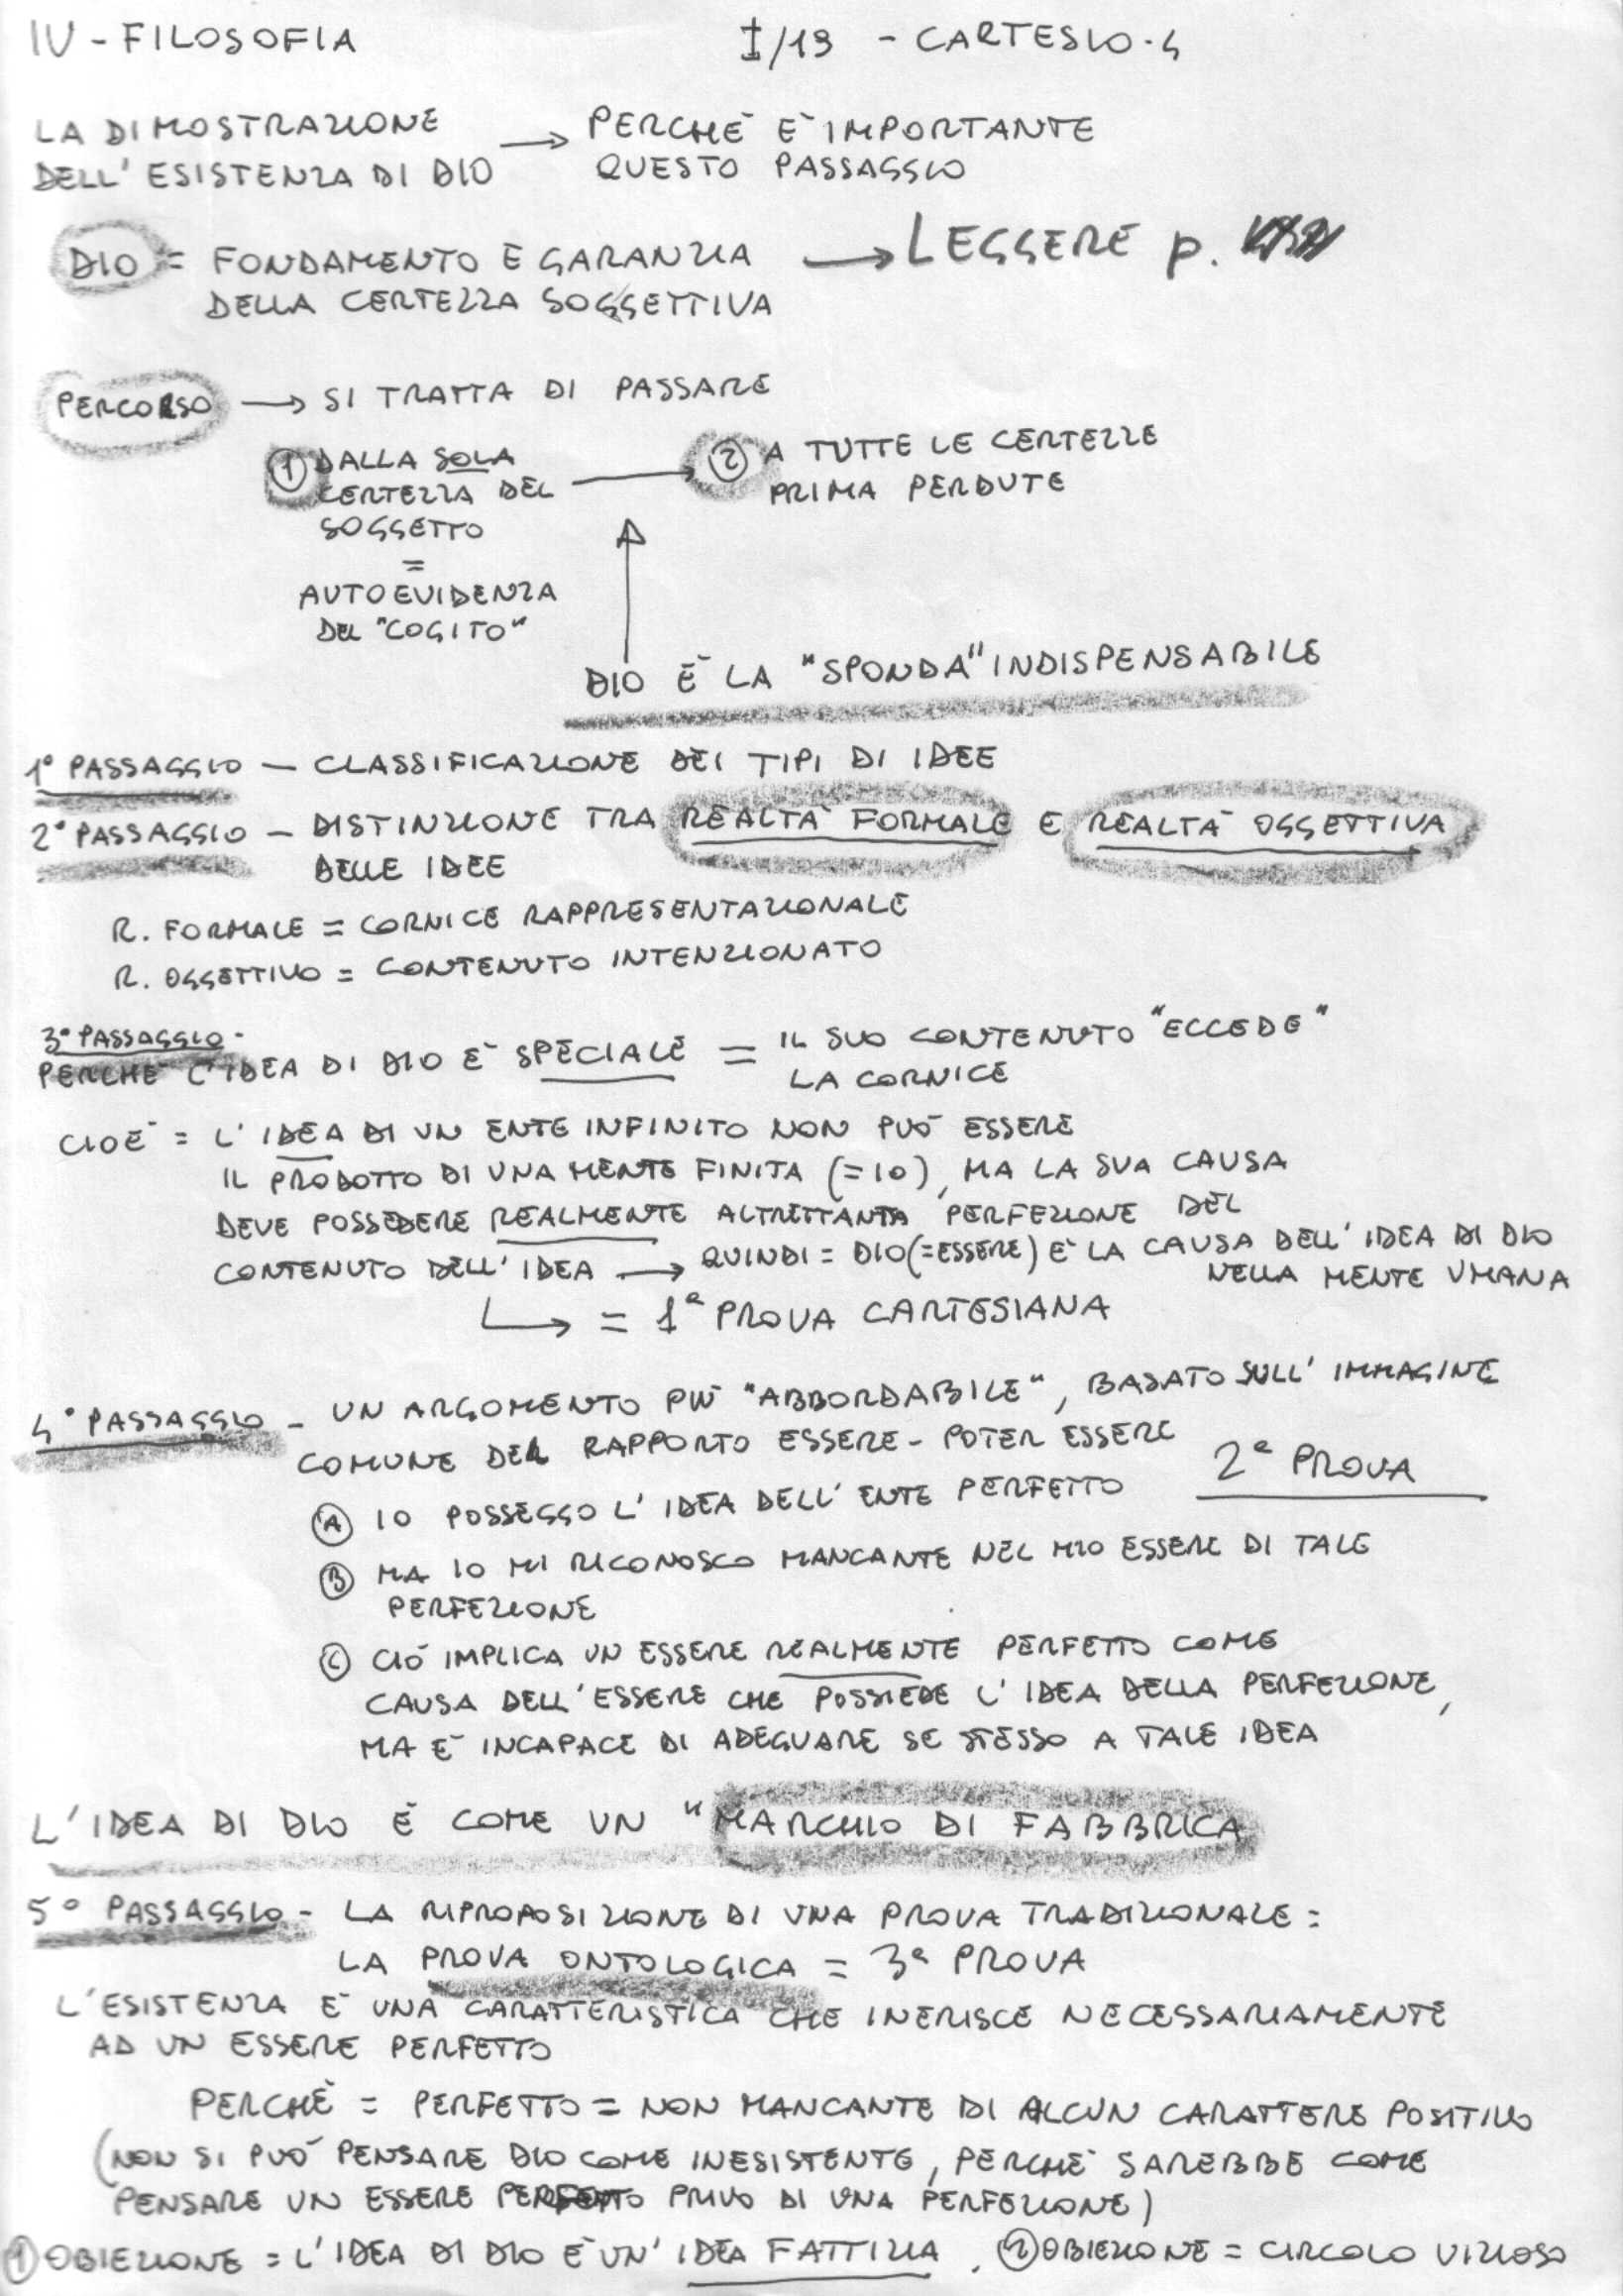 IV - FILOSOFIA
I/19 - CARTESIO. 4
LA DIMOSTRAZIONE
DELL' ESISTENZA DI DIO
→ PERCHÈ È IMPORTANTE
QUESTO PASSAGGIO
DIO = FONDAMENTO E GARANZIA
DELLA CERTEZZA SOGGETTIVA
→ LEGGERE p.
PERCORSO → SI TRATTA DI PASSARE
① DALLA SOLA
CERTEZZA DEL
SOGGETTO
=
AUTOEVIDENZA
DEL "COGITO"
② A TUTTE LE CERTEZZE
PRIMA PERDUTE
DIO È LA "SPONDA" INDISPENSABILE
1° PASSAGGIO - CLASSIFICAZIONE DEI TIPI DI IDEE
2° PASSAGGIO - DISTINZIONE TRA REALTÀ FORMALE E REALTÀ OGGETTIVA
DELLE IDEE
R. FORMALE = CORNICE RAPPRESENTAZIONALE
R. OGGETTIVO = CONTENUTO INTENZIONATO
3° PASSAGGIO -
PERCHÈ L'IDEA DI DIO È SPECIALE = IL SUO CONTENUTO "ECCEDE"
LA CORNICE
CIOÈ = L'IDEA DI UN ENTE INFINITO NON PUÒ ESSERE
IL PRODOTTO DI UNA MENTE FINITA (= IO), MA LA SUA CAUSA
DEVE POSSEDERE REALMENTE ALTRETTANTA PERFEZIONE DEL
CONTENUTO DELL' IDEA → QUINDI = DIO (= ESSERE) È LA CAUSA DELL' IDEA DI DIO
NELLA MENTE UMANA
→ = 1ª PROVA CARTESIANA
4° PASSAGGIO - UN ARGOMENTO PIÙ "ABBORDABILE", BASATO SULL' IMMAGINE
COMUNE DEL RAPPORTO ESSERE - POTER ESSERE
2ª PROVA
Ⓐ IO POSSEGGO L' IDEA DELL' ENTE PERFETTO
Ⓑ MA IO MI RICONOSCO MANCANTE NEL MIO ESSERE DI TALE
PERFEZIONE
Ⓒ CIÒ IMPLICA UN ESSERE REALMENTE PERFETTO COME
CAUSA DELL' ESSERE CHE POSSIEDE L' IDEA DELLA PERFEZIONE,
MA È INCAPACE DI ADEGUARE SE STESSO A TALE IDEA
L'IDEA DI DIO È COME UN "MARCHIO DI FABBRICA
5° PASSAGGIO - LA RIPROPOSIZIONE DI UNA PROVA TRADIZIONALE =
LA PROVA ONTOLOGICA = 3ª PROVA
L'ESISTENZA È UNA CARATTERISTICA CHE INERISCE NECESSARIAMENTE
AD UN ESSERE PERFETTO
PERCHÈ = PERFETTO = NON MANCANTE DI ALCUN CARATTERE POSITIVO
(NON SI PUÒ PENSARE DIO COME INESISTENTE, PERCHÈ SAREBBE COME
PENSARE UN ESSERE PERFETTO PRIVO DI UNA PERFEZIONE)
① OBIEZIONE = L'IDEA DI DIO È UN' IDEA FATTIZIA. ② OBIEZIONE = CIRCOLO VIZIOSO